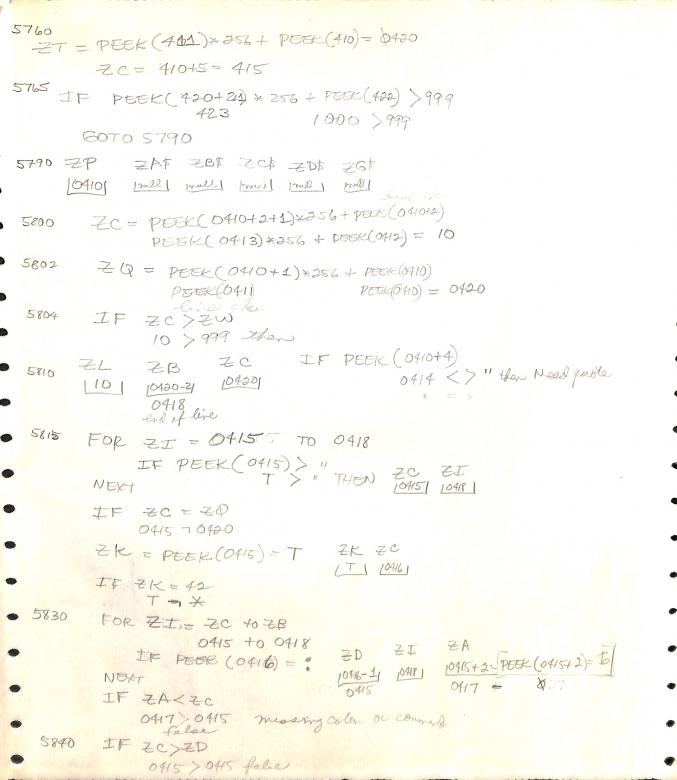 5760
ZT = PEEK(411)*256 + PEEK(410) = 0420
ZC = 410+5 = 415
5765 IF PEEK(420+2+1)*256 + PEEK(422) >999
423 1000 >999
GOTO 5790
5790 ZP ZA$ ZB$ ZC$ ZD$ ZG$
|0410| |null| |null| |null| |null| |null|
5800 ZC = PEEK(0410+2+1)*256 + PEEK(0410+2)
PEEK(0413)*256 + PEEK(0412) = 10
5802 ZQ = PEEK(0410+1)*256 + PEEK(0410)
PEEK(0411) PEEK(0410) = 0420
5804 IF ZC > ZW
10 > 999 then
5810 ZL ZB ZC IF PEEK(0410+4)
|10| |0420-2| |0420| 0414 <> " then Need quote
0418 " = "
end of line
5815 FOR ZI = 0415 TO 0418
IF PEEK(0415) > "
T > " THEN ZC ZI
NEXT |0415| |0418|
IF ZC = ZQ
0415 ¬ 0420
ZK = PEEK(0415) = T ZK ZC
|T| |0416|
IF ZK = 42
T ¬ *
5830 FOR ZI = ZC to ZB
0415 to 0418
IF PEEK(0416) = : ZD ZI ZA
|0416-1| |0418| |0415+2-PEEK(0415+2)=
NEXT 0415 0417 -
IF ZA < ZC
0417 > 0415 missing colon or comment
false
5840 IF ZC > ZD
0415 > 0415 false